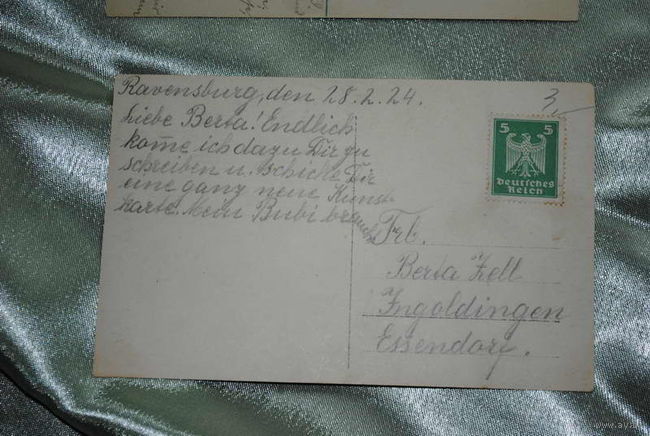 Ravensburg, den 28.2.24.
3
Liebe Berta! Endlich
kom̄e ich dazu Dir zu
schreiben u. schicke Dir
eine ganz neue Kunst-
karte. Mein Bubi braucht
5 5
Deutsches
Reich
Frl.
Berta Zell
Ingoldingen
Essendorf.